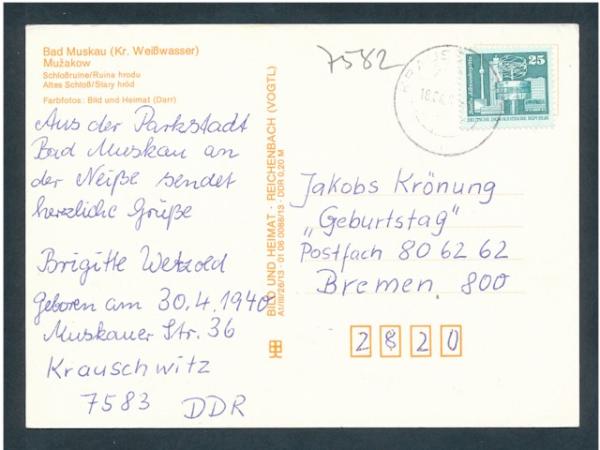 Bad Muskau (Kr. Weißwasser)
Mužakow
Schloßruine/Ruina hrodu
Altes Schloß/Stary hród
Farbfotos: Bild und Heimat (Darr)
7582
25
DEUTSCHE DEMOKRATISCHE REPUBLIK
Aus der Parkstadt
Bad Muskau an
der Neiße sendet
herzliche Grüße
Brigitte Wetzold
geboren am 30.4.1940
Muskauer Str. 36
Krauschwitz
7583 DDR
BILD UND HEIMAT · REICHENBACH (VOGTL)
A1/III/26/13 · 01 06 0088/13 · DDR 0,20 M
Jakobs Krönung
„Geburtstag"
Postfach 80 62 62
Bremen 800
2820